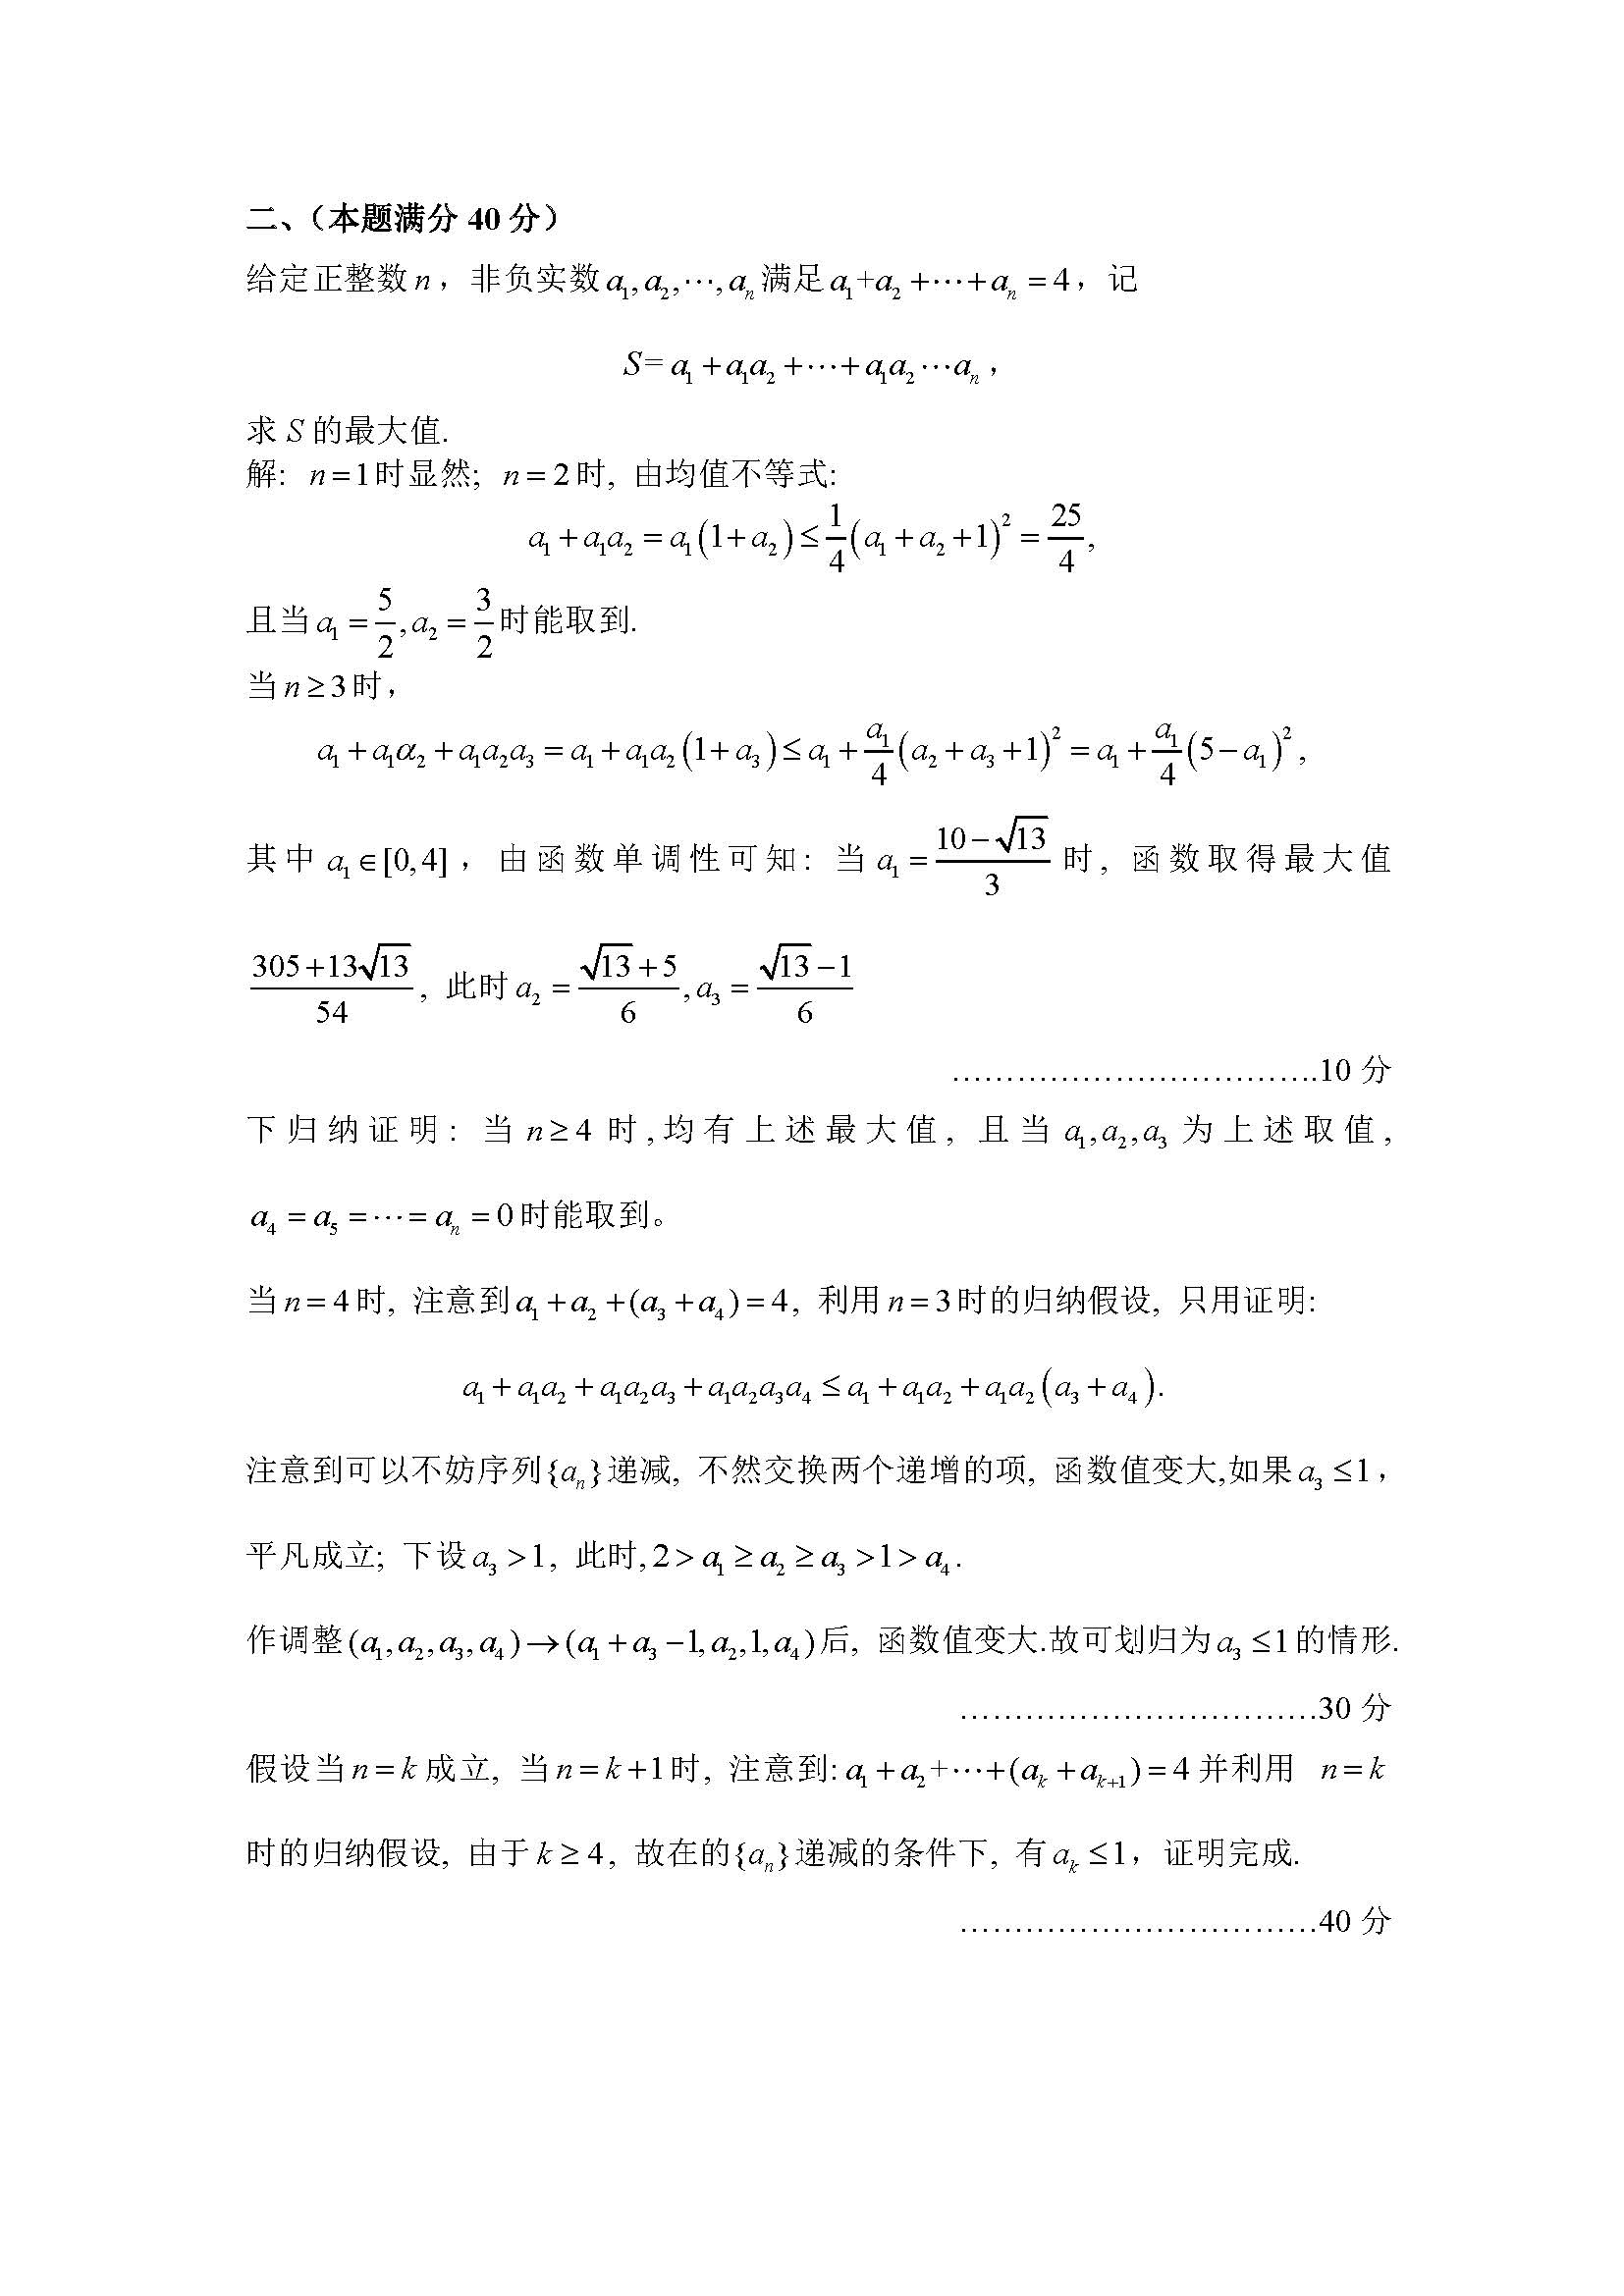 二、（本题满分 40 分）
给定正整数 n，非负实数 a₁, a₂, ⋯, aₙ 满足 a₁+a₂ +⋯+ aₙ = 4，记
S= a₁ + a₁a₂ +⋯+ a₁a₂ ⋯aₙ，
求 S 的最大值.
解: n = 1时显然; n = 2时, 由均值不等式:
a₁ + a₁a₂ = a₁(1+ a₂) ≤ 1/4 (a₁ + a₂ +1)² = 25/4,
且当 a₁ = 5/2, a₂ = 3/2 时能取到.
当 n ≥ 3时，
a₁ + a₁α₂ + a₁a₂a₃ = a₁ + a₁a₂(1+ a₃) ≤ a₁ + a₁/4 (a₂ + a₃ +1)² = a₁ + a₁/4 (5− a₁)²,
其中 a₁ ∈[0,4]，由函数单调性可知: 当 a₁ = (10−√13)/3 时, 函数取得最大值
(305+13√13)/54, 此时 a₂ = (√13+5)/6, a₃ = (√13−1)/6
…………………………….10 分
下归纳证明: 当 n ≥ 4 时,均有上述最大值, 且当 a₁, a₂, a₃ 为上述取值,
a₄ = a₅ = ⋯ = aₙ = 0时能取到。
当 n = 4时, 注意到 a₁ + a₂ + (a₃ + a₄) = 4, 利用 n = 3时的归纳假设, 只用证明:
a₁ + a₁a₂ + a₁a₂a₃ + a₁a₂a₃a₄ ≤ a₁ + a₁a₂ + a₁a₂(a₃ + a₄).
注意到可以不妨序列{aₙ}递减, 不然交换两个递增的项, 函数值变大,如果 a₃ ≤1,
平凡成立; 下设 a₃ >1, 此时, 2 > a₁ ≥ a₂ ≥ a₃ >1> a₄.
作调整(a₁, a₂, a₃, a₄) → (a₁ + a₃ −1, a₂,1, a₄)后, 函数值变大.故可划归为 a₃ ≤1的情形.
……………………………30 分
假设当 n = k 成立, 当 n = k +1时, 注意到: a₁ + a₂+⋯+ (aₖ + aₖ₊₁) = 4 并利用 n = k
时的归纳假设, 由于 k ≥ 4, 故在的{aₙ}递减的条件下, 有 aₖ ≤1，证明完成.
……………………………40 分